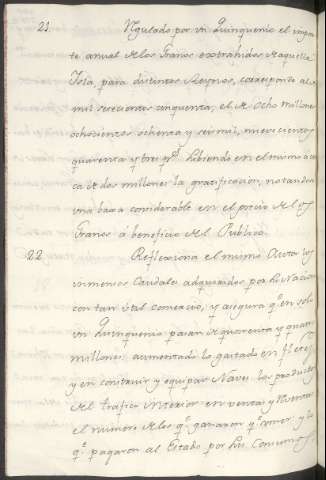 21. Regulado por un Quinquenio el impor-
te anual de los Granos extrahidos de aquella
Isla, para distintos Reynos, corresponde a
mil setecientos cinquenta, el de ocho millones
ochocientos ochenta y seis mil, nuevecientos
quarenta y tres p.s subiendo en el mismo
ca de dos millones la gratificacion, notandose
una baxa considerable en el precio de los
Granos á beneficio del Publico.
22. Reflexiona el mismo Autor los
inmensos Caudales adquiridos por la Nacion
con tan util comercio, y asegura q.e en solo
un Quinquenio pasan de quarenta y quatro
millones, aumentado lo gastado en fletes,
y en construir y equipar Naves, los productos
del trafico interior en ventas y
el numero de los q.e ganaron q.e y lo
q.e pagaron al Estado por sus Consumos